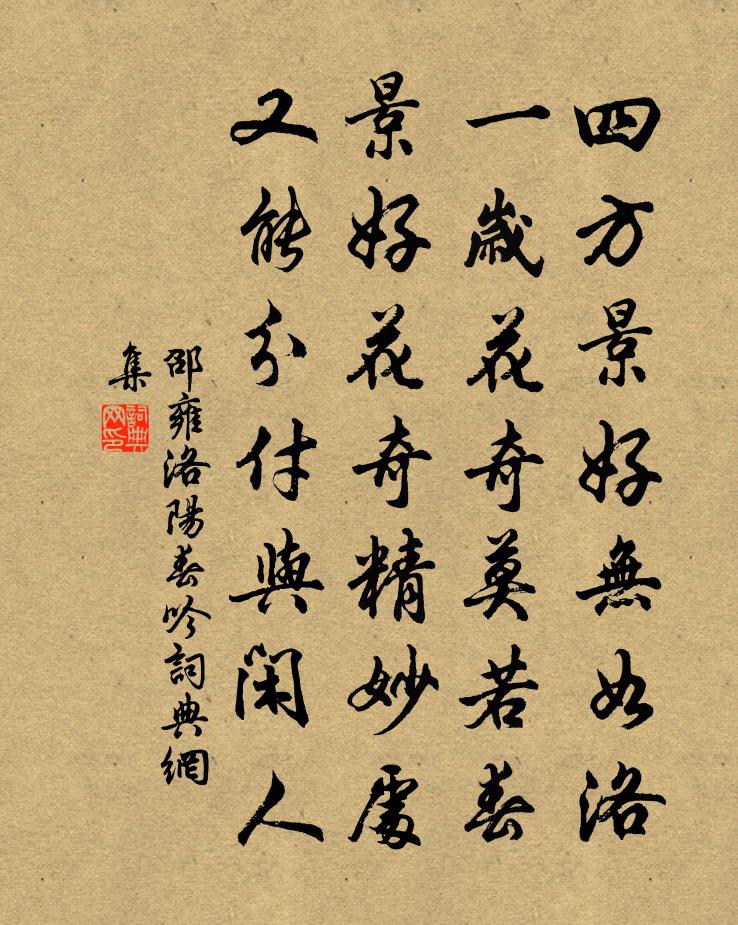 四方景好無如洛
一歲花奇莫若春
景好花奇精妙處
又能分付與閑人
邵雍洛陽春吟詞典網
集
詞典網印